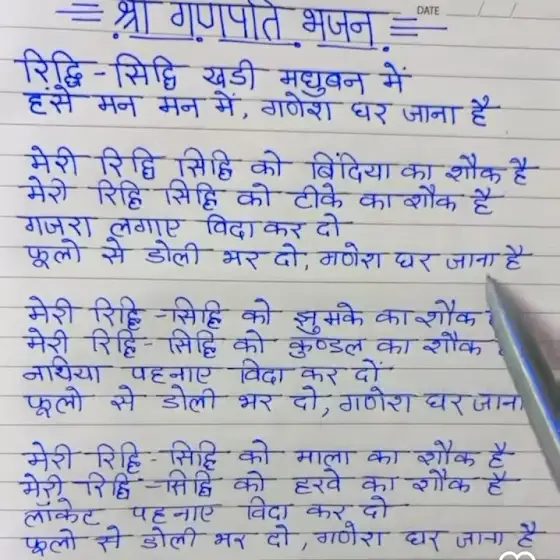 = श्री गणपति भजन =
DATE / /
रिद्धि - सिद्धि खडी मधुबन में
हंसे मन मन में, गणेश घर जाना है
मेरी रिद्धि सिद्धि को बिंदिया का शौक है
मेरी रिद्धि सिद्धि को टीके का शौक है
गजरा लगाए विदा कर दो
फूलो से डोली भर दो, गणेश घर जाना है
मेरी रिद्धि - सिद्धि को झुमके का शौक
मेरी रिद्धि - सिद्धि को कुण्डल का शौक
नथिया पहनाए विदा कर दों
फूलो से डोली भर दो, गणेश घर जाना
मेरी रिद्धि - सिद्धि को माला का शौक है
मेरी रिद्धि - सिद्धि को हरवे का शौक है
लॉकेट पहनाए विदा कर दो
फूलो से डोली भर दो, गणेश घर जाना है